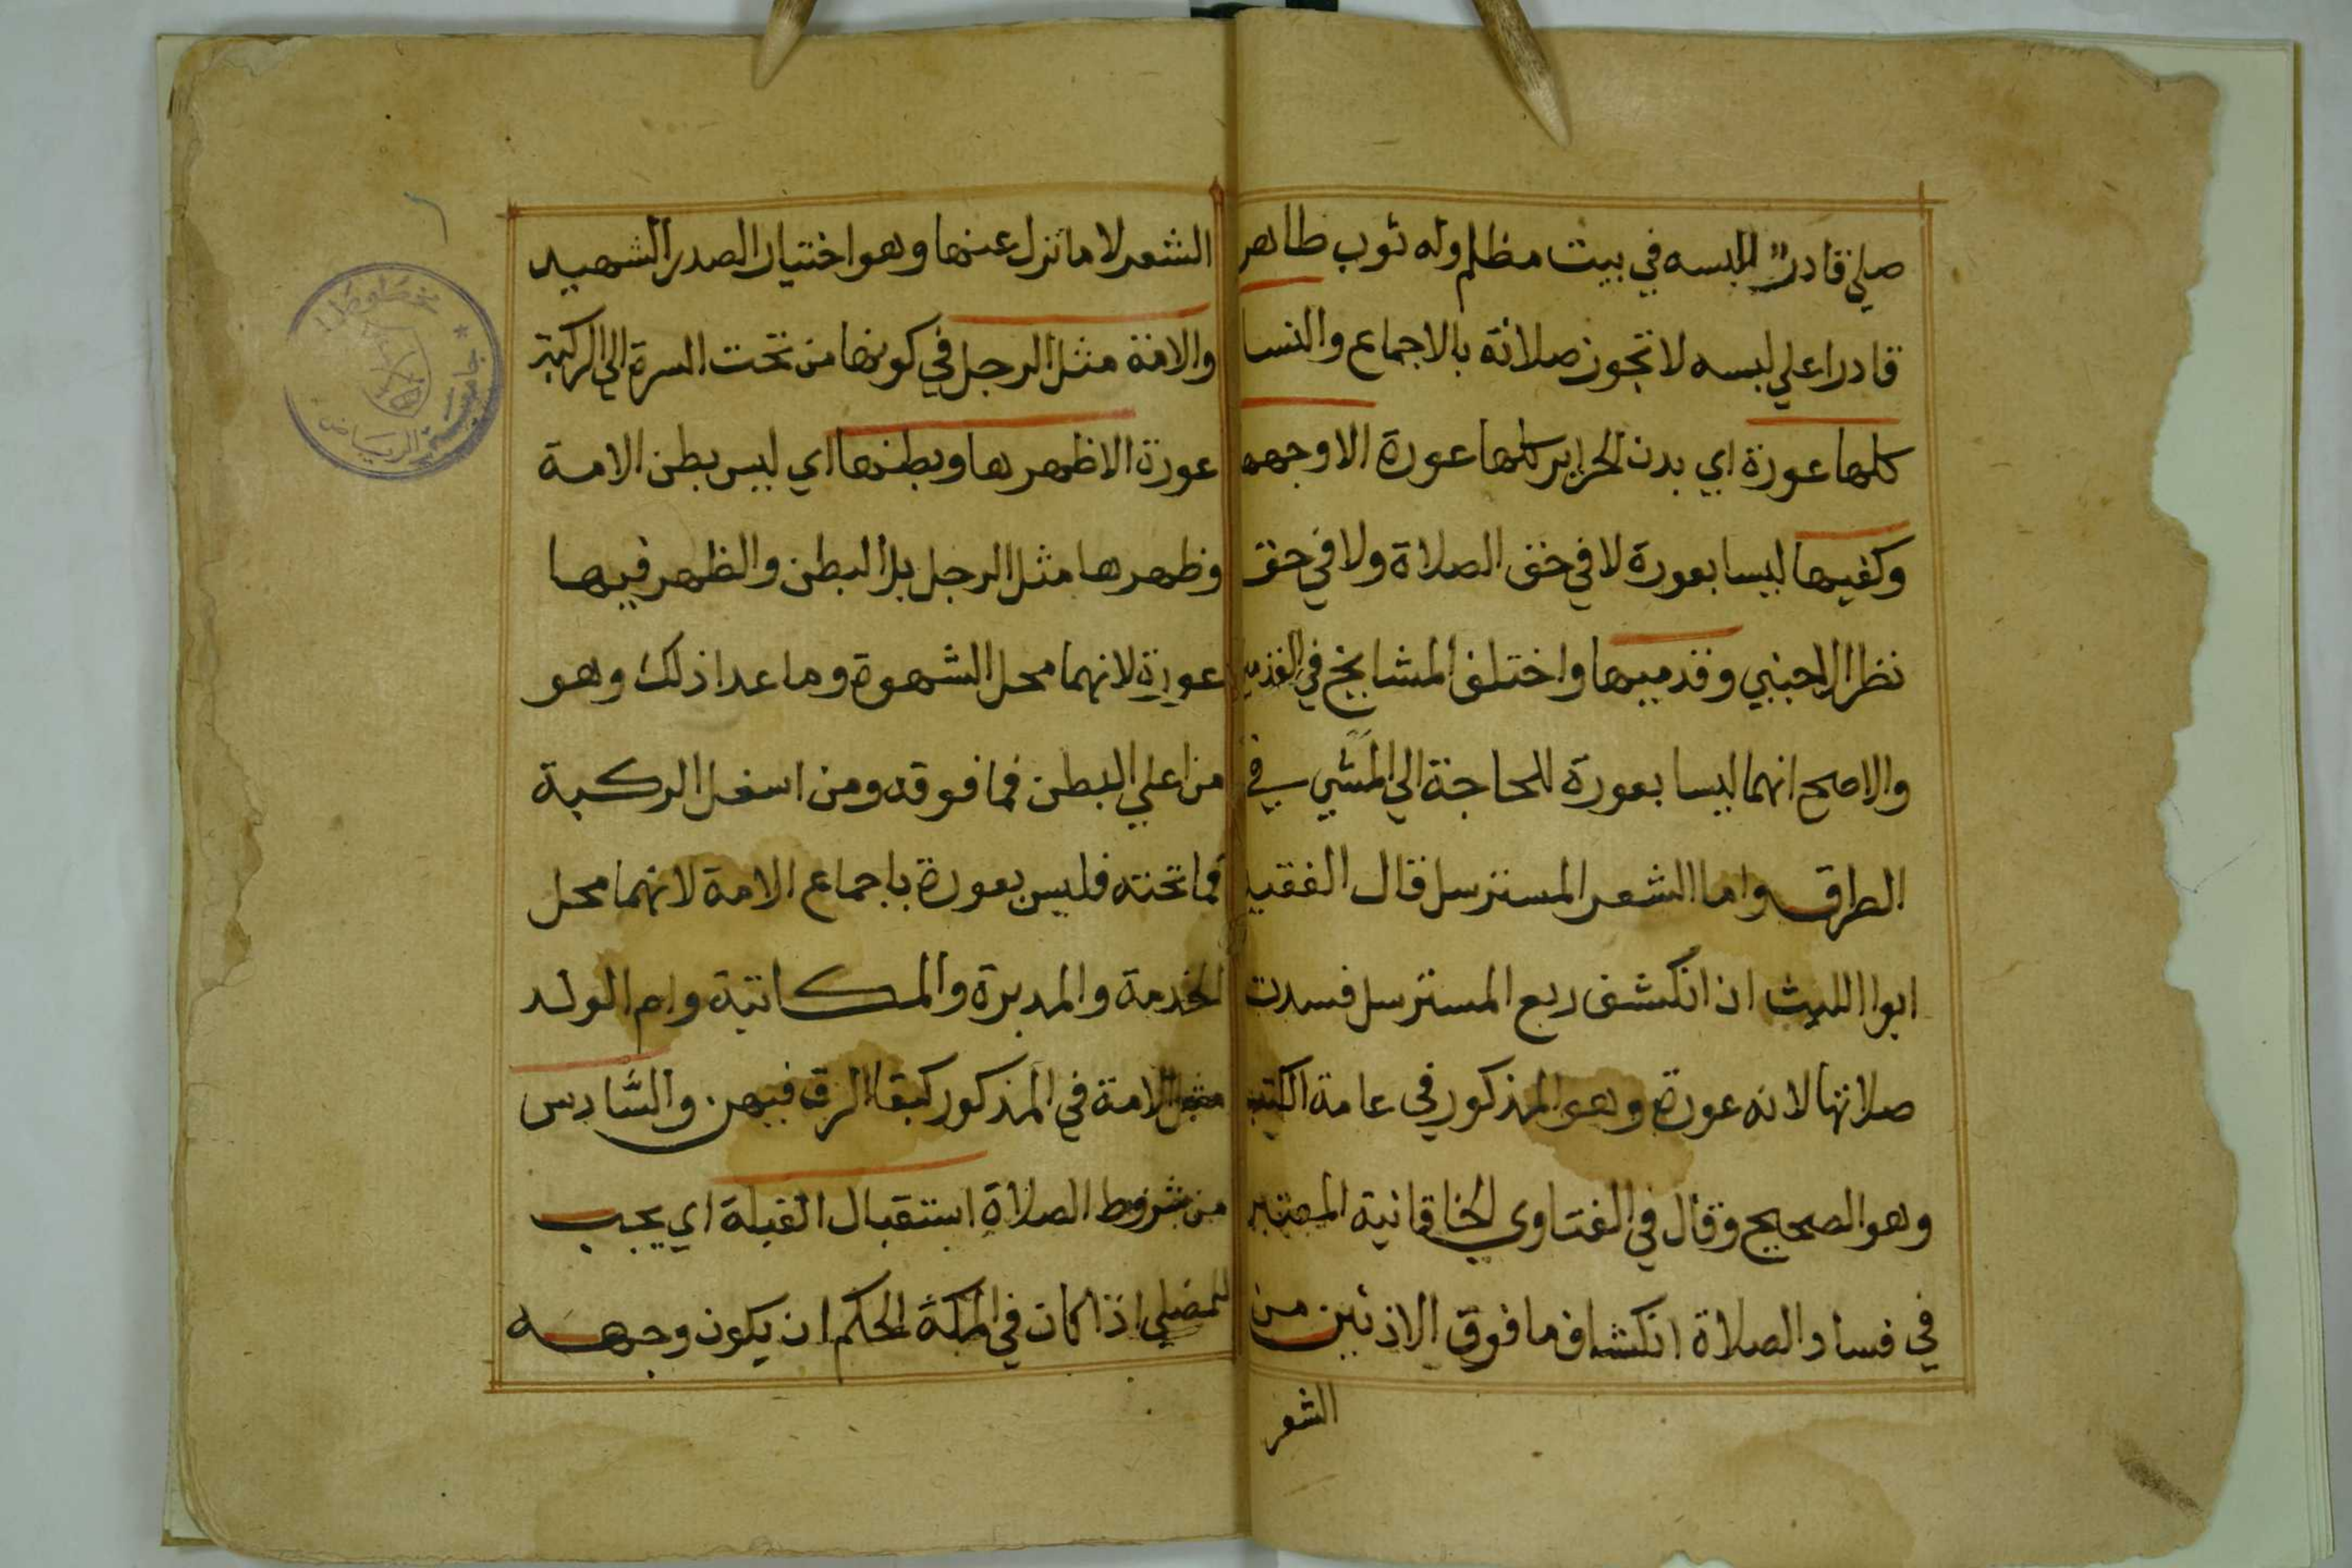 صلي قادرا للبسه في بيت مظلم وله ثوب طاهر
قادرا علي لبسه لا تجوز صلاته بالاجماع والنسا
كلها عورة اي بدن الحراير كلها عورة الا وجهها
وكفيها ليسا بعورة لا في حق الصلاة ولا في حق
نظر الاجنبي وقدميها واختلف المشايخ في القدمين
والاصح انهما ليسا بعورة للحاجة الي المشي في
الطرق واما الشعر المسترسل قال الفقيه
ابوا الليث اذا انكشف ربع المسترسل فسدت
صلاتها لانه عورة وهو المذكور في عامة الكتب
وهو الصحيح وقال في الفتاوي الخاقانية المعتبر
في فساد الصلاة انكشاف ما فوق الاذنين من
الشعر
الشعر لا ما نزل عنها وهو اختيار الصدر الشهيد
والامة مثل الرجل في كونها من تحت السرة الي الركبة
عورة الا ظهرها وبطنها اي ليس بطن الامة
وظهرها مثل الرجل بل البطن والظهر فيها
عورة لانهما محل الشهوة وما عدا ذلك وهو
من اعلي البطن فما فوقه ومن اسفل الركبة
فما تحته فليس بعورة باجماع الامة لانهما محل
الخدمة والمدبرة والمكاتبة وام الولد
مثل الامة في المذكور لبقا الرق فيهن والسّادس
من شروط الصلاة استقبال القبلة اي يجب
للمصلي اذا كان في المكة الحكم ان يكون وجهه
مخطوطا
جامعة الرياض